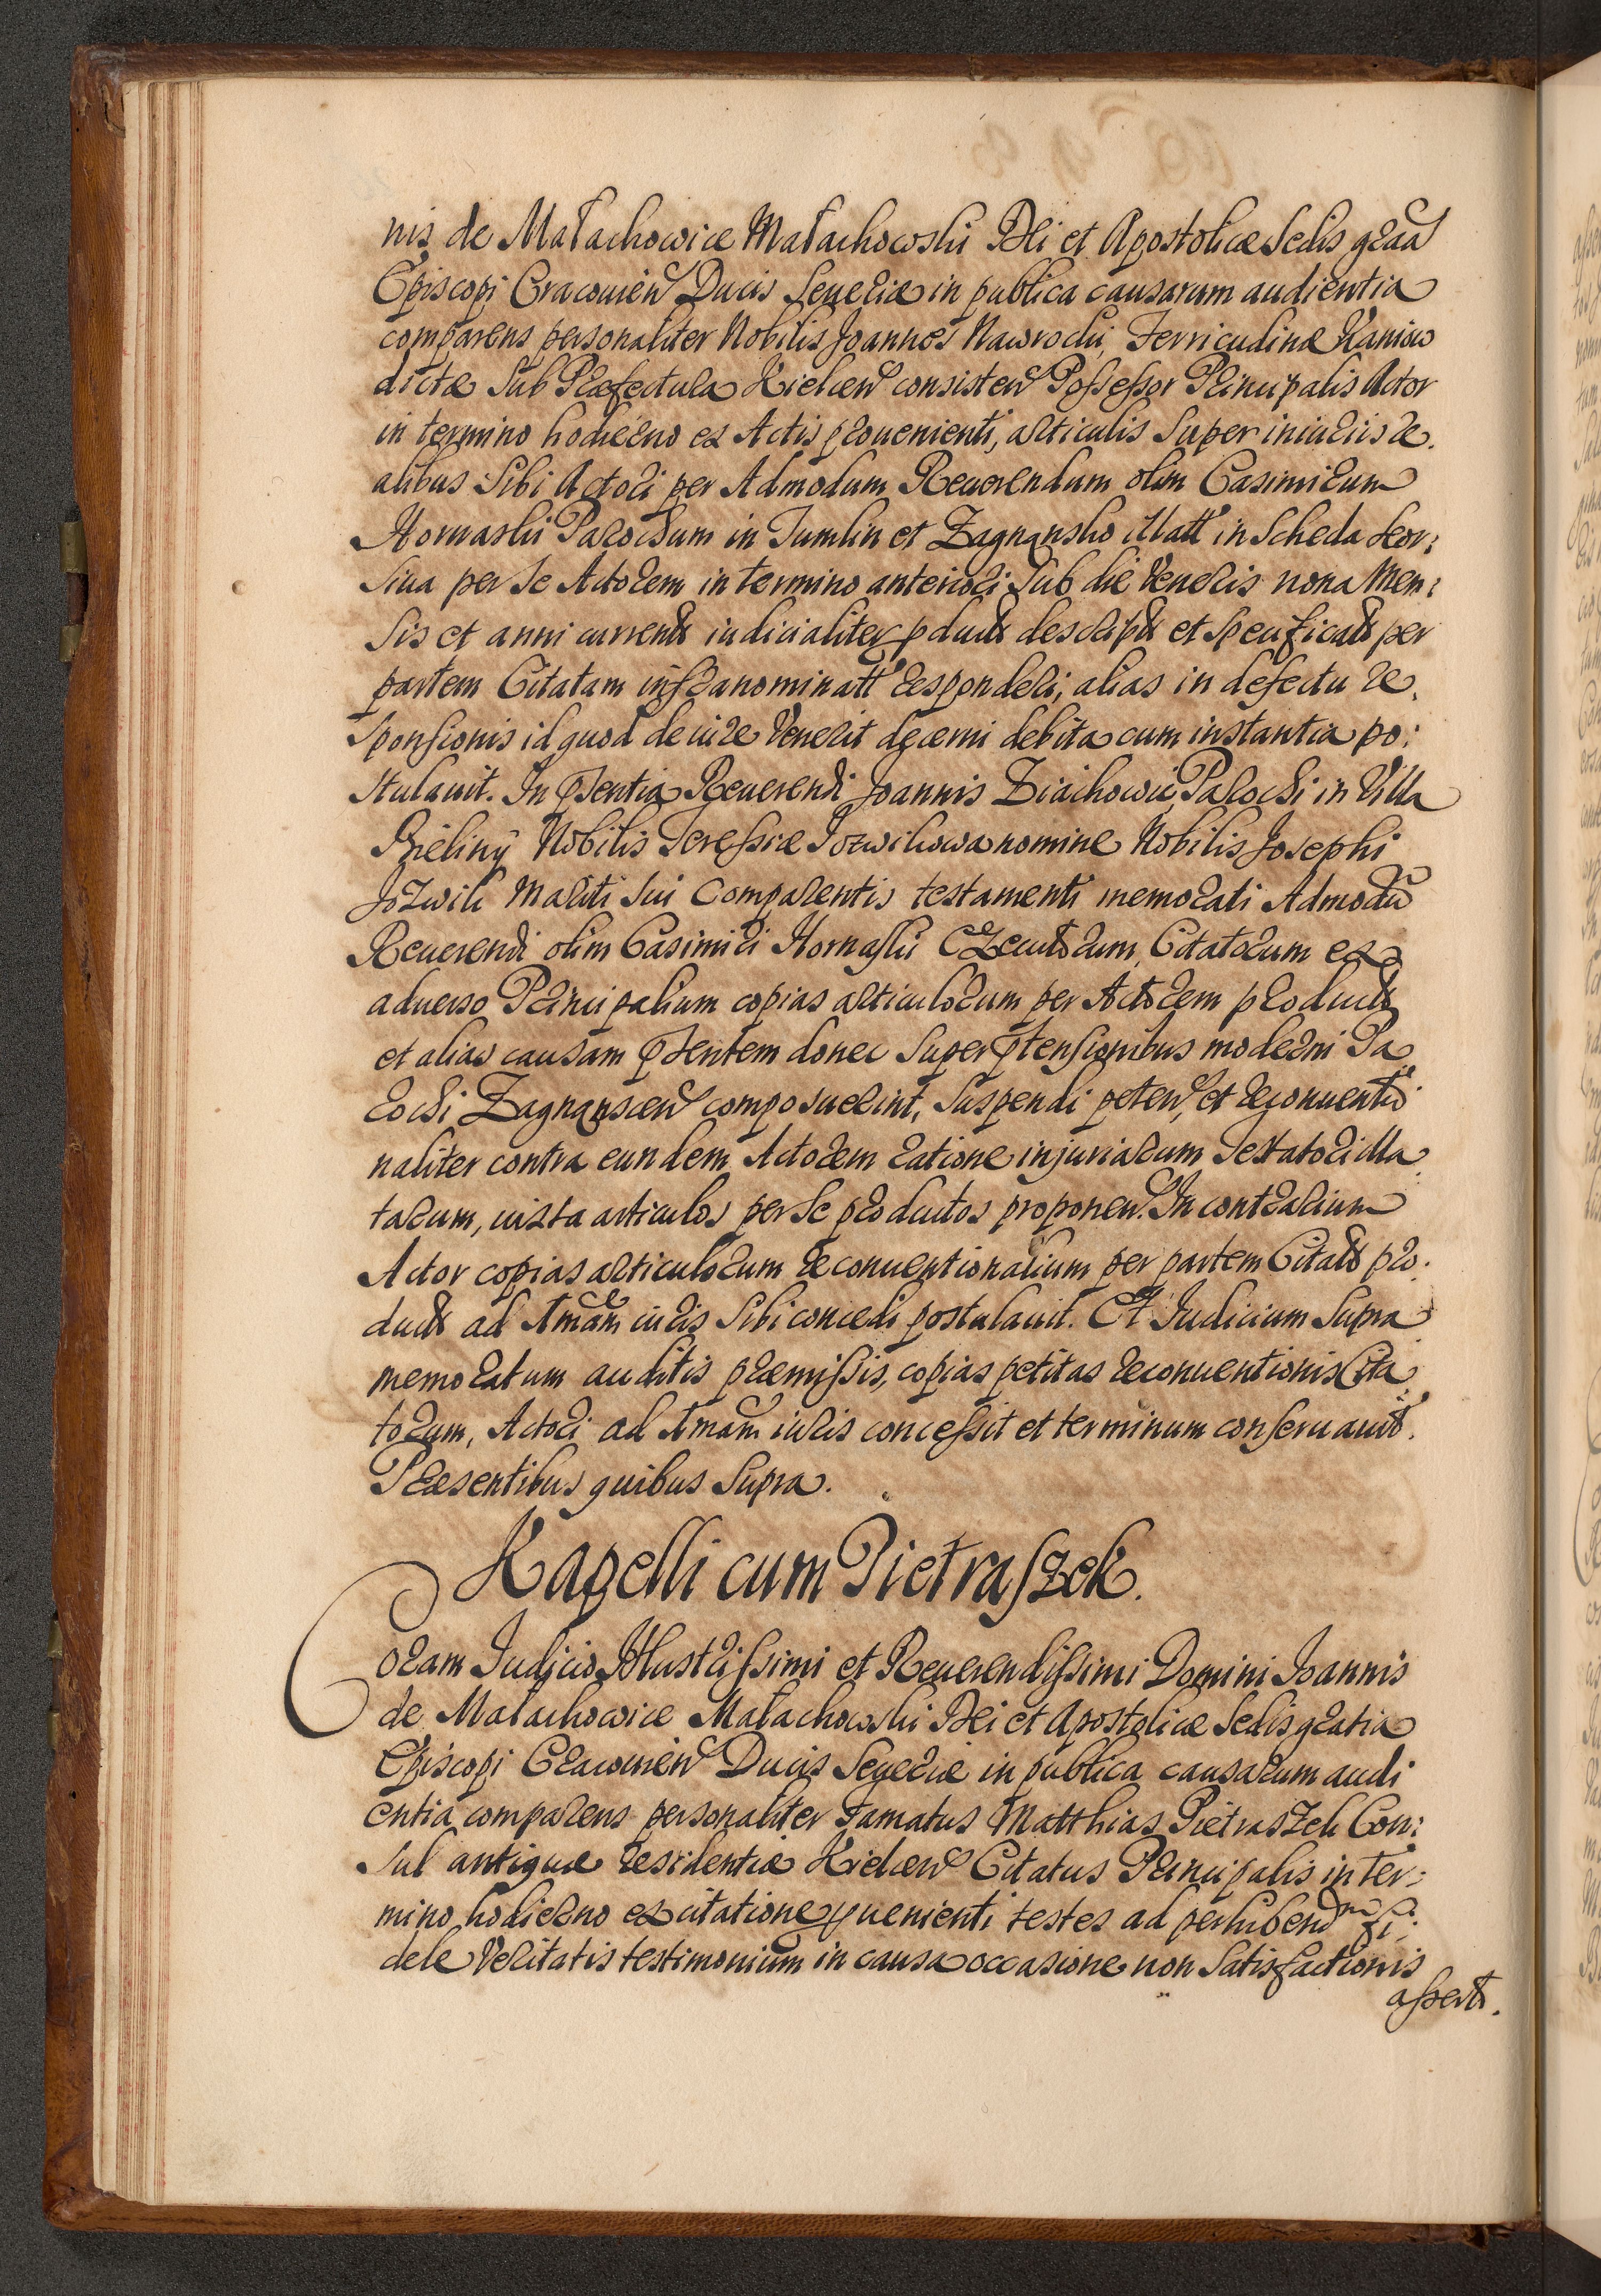 nis de Małachowice Małachowski Dei et Apostolicæ Sedis grãa
Episcopi Cracovien Ducis Severiæ in publica causarum audientia
comparens personaliter Nobilis Joannes Nawrocki, Ferricudinæ Kaniow
dictæ Sub Præfectura Kielcen consisten Possessor Principalis Actor
in termino hodierno ex Actis provenienti, articulis Super iniuriis re
alibus Sibi Actori per Admodum Reverendum olim Casimirum
Hornaski Parochum in Tumlin et Zagnansko illatt in Scheda Seor:
Siva per Se Actorem in termino anteriori Sub die Veneris nona Men:
Sis et anni currents iudicialiter pducts descripts et Specificats per
partem Citatam infranominatt responderi, alias in defectu re
Sponsionis id quod de iure Venerit decerni debita cum instantia po:
Stulavit. In Psentia Reverendi Joannis Ziachowic Parochi in Villa
Bieliny Nobilis Teressiæ Jozwikowa nomine Nobilis Josephi
Jozwik Mariti Sui Comparentis testamenti memorati Admodũ
Reverendi olim Casimiri Hornaski Executorum, Citatorum ex
adverso Principalium copias articulorum per Actorem products
et alias causam Psentem donec Super Ptensionibus moderni Pa
rochi Zagnanscen composuerint, Suspendi peten, et reconventio
naliter contra eundem Actorem ratione injuriarum Testatori illa
tarum, iuxta articulos per Se productos proponen. In contrarium
Actor copias articulorum reconventionalium per partem Citats pro
ducts ad Amam iuris Sibi concedi postulavit. Et Judicium Supra
memoratum auditis præmissis, copias petitas reconventionis Cita
torum, Actori ad Amam iuris concessit et terminum conservavit.
Præsentibus quibus Supra.
Kapelli cum Pietraszek.
Coram Judicio Illustrissimi et Reverendissimi Domini Joannis
de Małachowice Małachowski Dei et Apostolicæ Sedis gratia
Episcopi Cracovien Ducis Severiæ in publica causarum audi
entia comparens personaliter Famatus Matthias Pietraszek Con:
Sul antiquæ residentiæ Kielcen Citatus Principalis in ter:
mino hodierno ex citatione pvenienti testes ad perhibend m fi:
dele Veritatis testimonium in causa occasione non Satisfactionis
asserts.